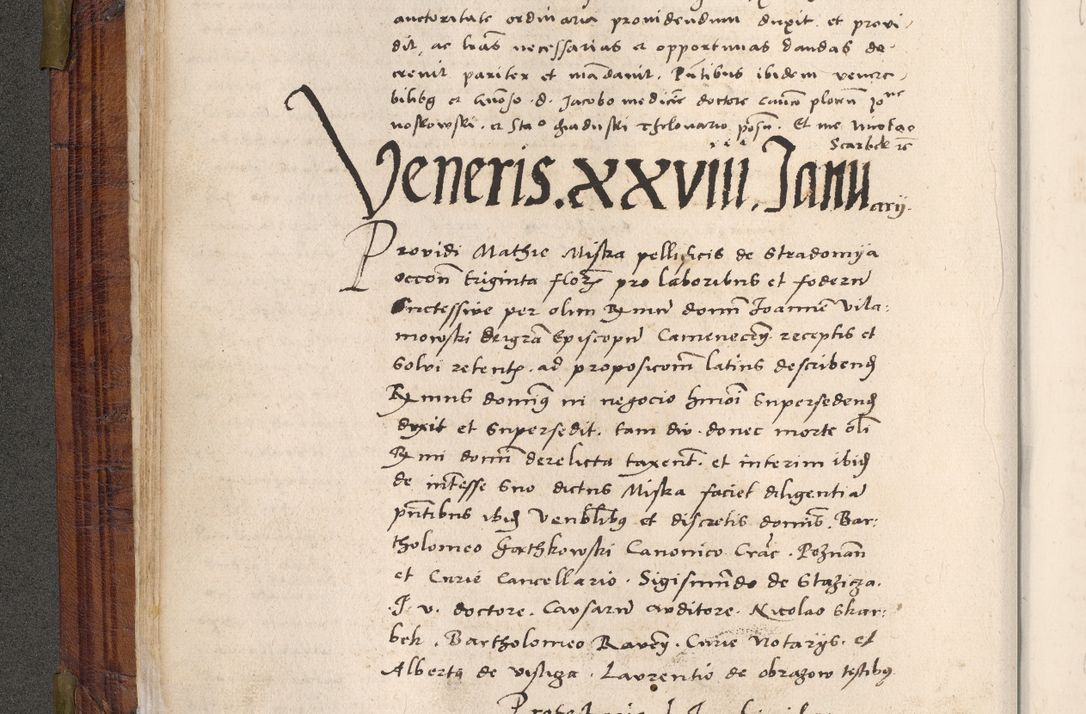 auctoritate ordinaria providendum duxit et provi-
dit, ac lras necessarias et opportunas dandas de-
crevit pariter et mãdavit. Pñtibus ibidem venera-
bilibq et gñoso d. Jacobo medicie doctore canco plocen Jone
noskowski et Stao thelonario posn. Et me Nicolao
Scarbek
Veneris. xxviii. Januarij.
Providi Mathie Miska pellificis de Stradomya
occon triginta flor pro laboribus et foderu
Succtessive per olim Rmum domin Joannem Vila-
mowski dei gra Episcopu Camenecen receptis et
solvi retentis ad propositionem latius describend
Rmus dominq in negocio hmoi supersedend
duxit et supersedit. tam diu donec morte oli
Rmi domi derelicta taxent. et interim ibid
de interesse suo dictus Miska faciet diligentia
pntibus ibid Venblibq et discretis domis. Bar-
tholomeo Canonico Crac. Poznan
et Curie Cancellario. Sigismundo de Stazicza.
J. v. doctore. Causaru auditore. Nicolao Skar-
bek. Bartholomeo Curie Notarys. et
Alberto de visliza. Laurentio de obrazow testibq